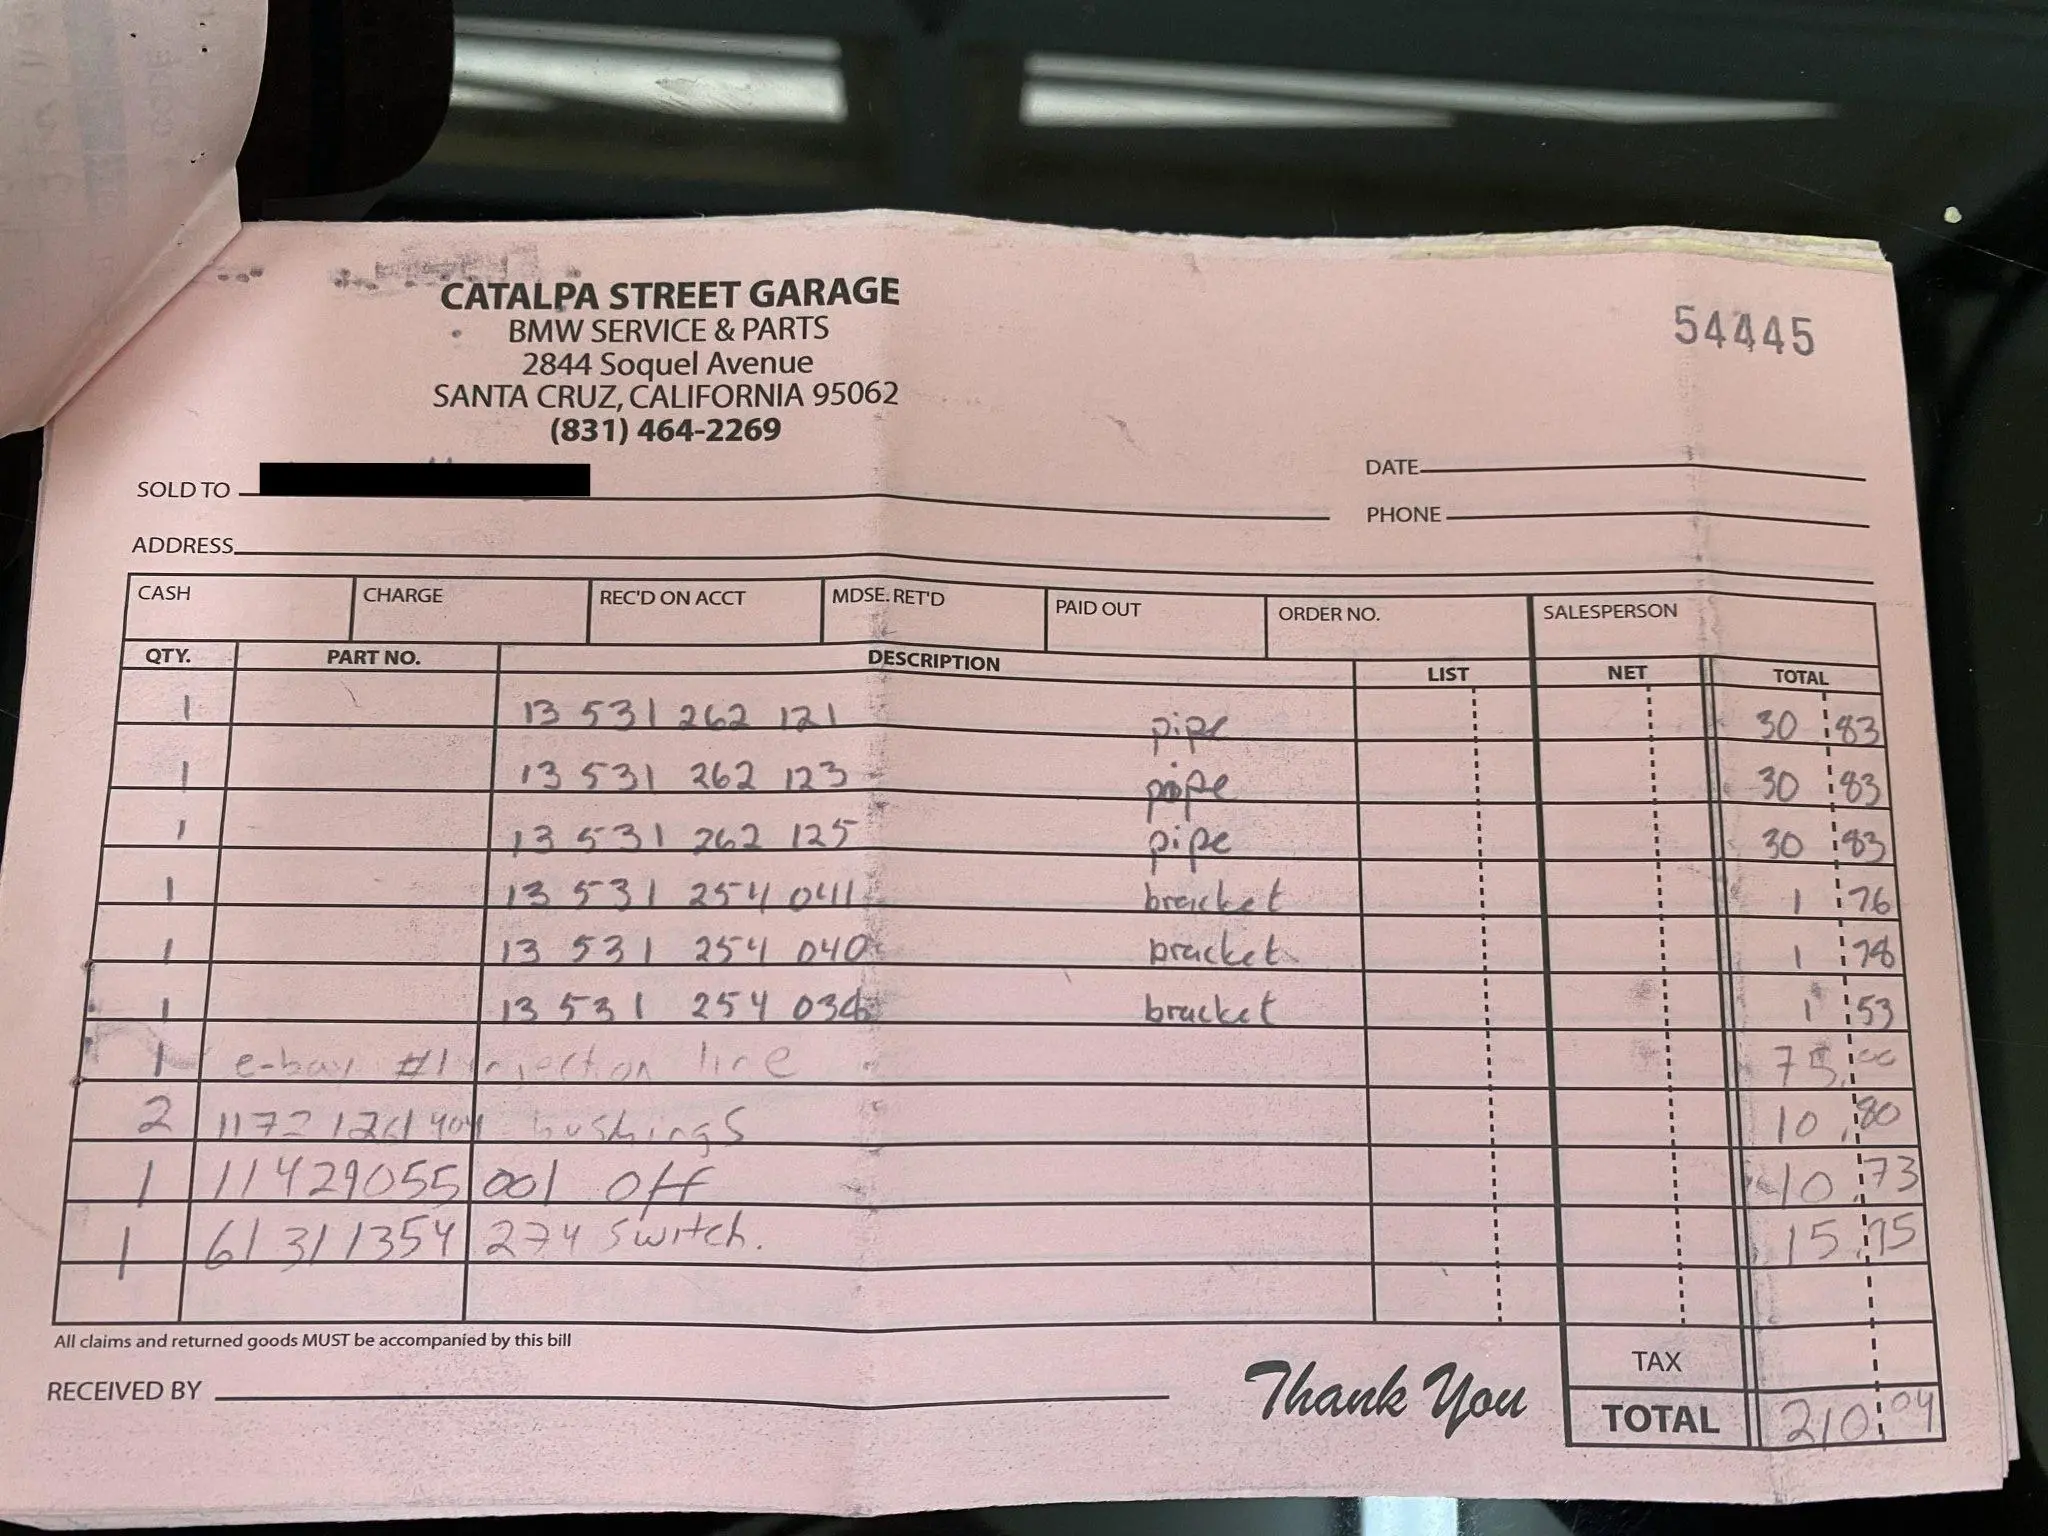 CATALPA STREET GARAGE
BMW SERVICE & PARTS
2844 Soquel Avenue
SANTA CRUZ, CALIFORNIA 95062
(831) 464-2269
54445
SOLD TO
DATE
PHONE
ADDRESS
CASH CHARGE REC'D ON ACCT MDSE. RET'D PAID OUT ORDER NO. SALESPERSON
QTY. PART NO. DESCRIPTION LIST NET TOTAL
1 13 531 262 121 pipe 30 83
1 13 531 262 123 pipe 30 83
1 13 531 262 125 pipe 30 83
1 13 531 254 041 bracket 1 76
1 13 531 254 040 bracket 1 78
1 13 531 254 bracket 1 53
1 e-bay #1 injection line 75.00
2 11721261404 bushings 10.80
1 11429055001 10.73
1 61311354274 switch. 15.75
All claims and returned goods MUST be accompanied by this bill
RECEIVED BY
Thank You
TAX
TOTAL 210.04